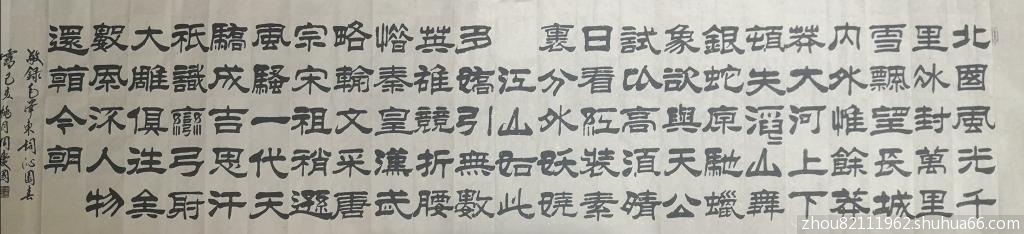 北國風光千
里冰封萬里
雪飄望長城
内外惟餘莽
莽大河上下
頓失滔〻山舞
銀蛇原馳蠟
象欲與天公
試比高須晴
日看紅裝素
裹分外妖嬈
江山如此
多嬌引無數
英雄競折腰
惜秦皇漢武
略輸文采唐
宗宋祖稍遜
風騷一代天
驕成吉思汗
祇識彎弓射
大雕俱往矣
數風流人物
還看今朝
敬錄毛澤東詞沁園春
雪己亥
zhou82111962.shuhua66.com